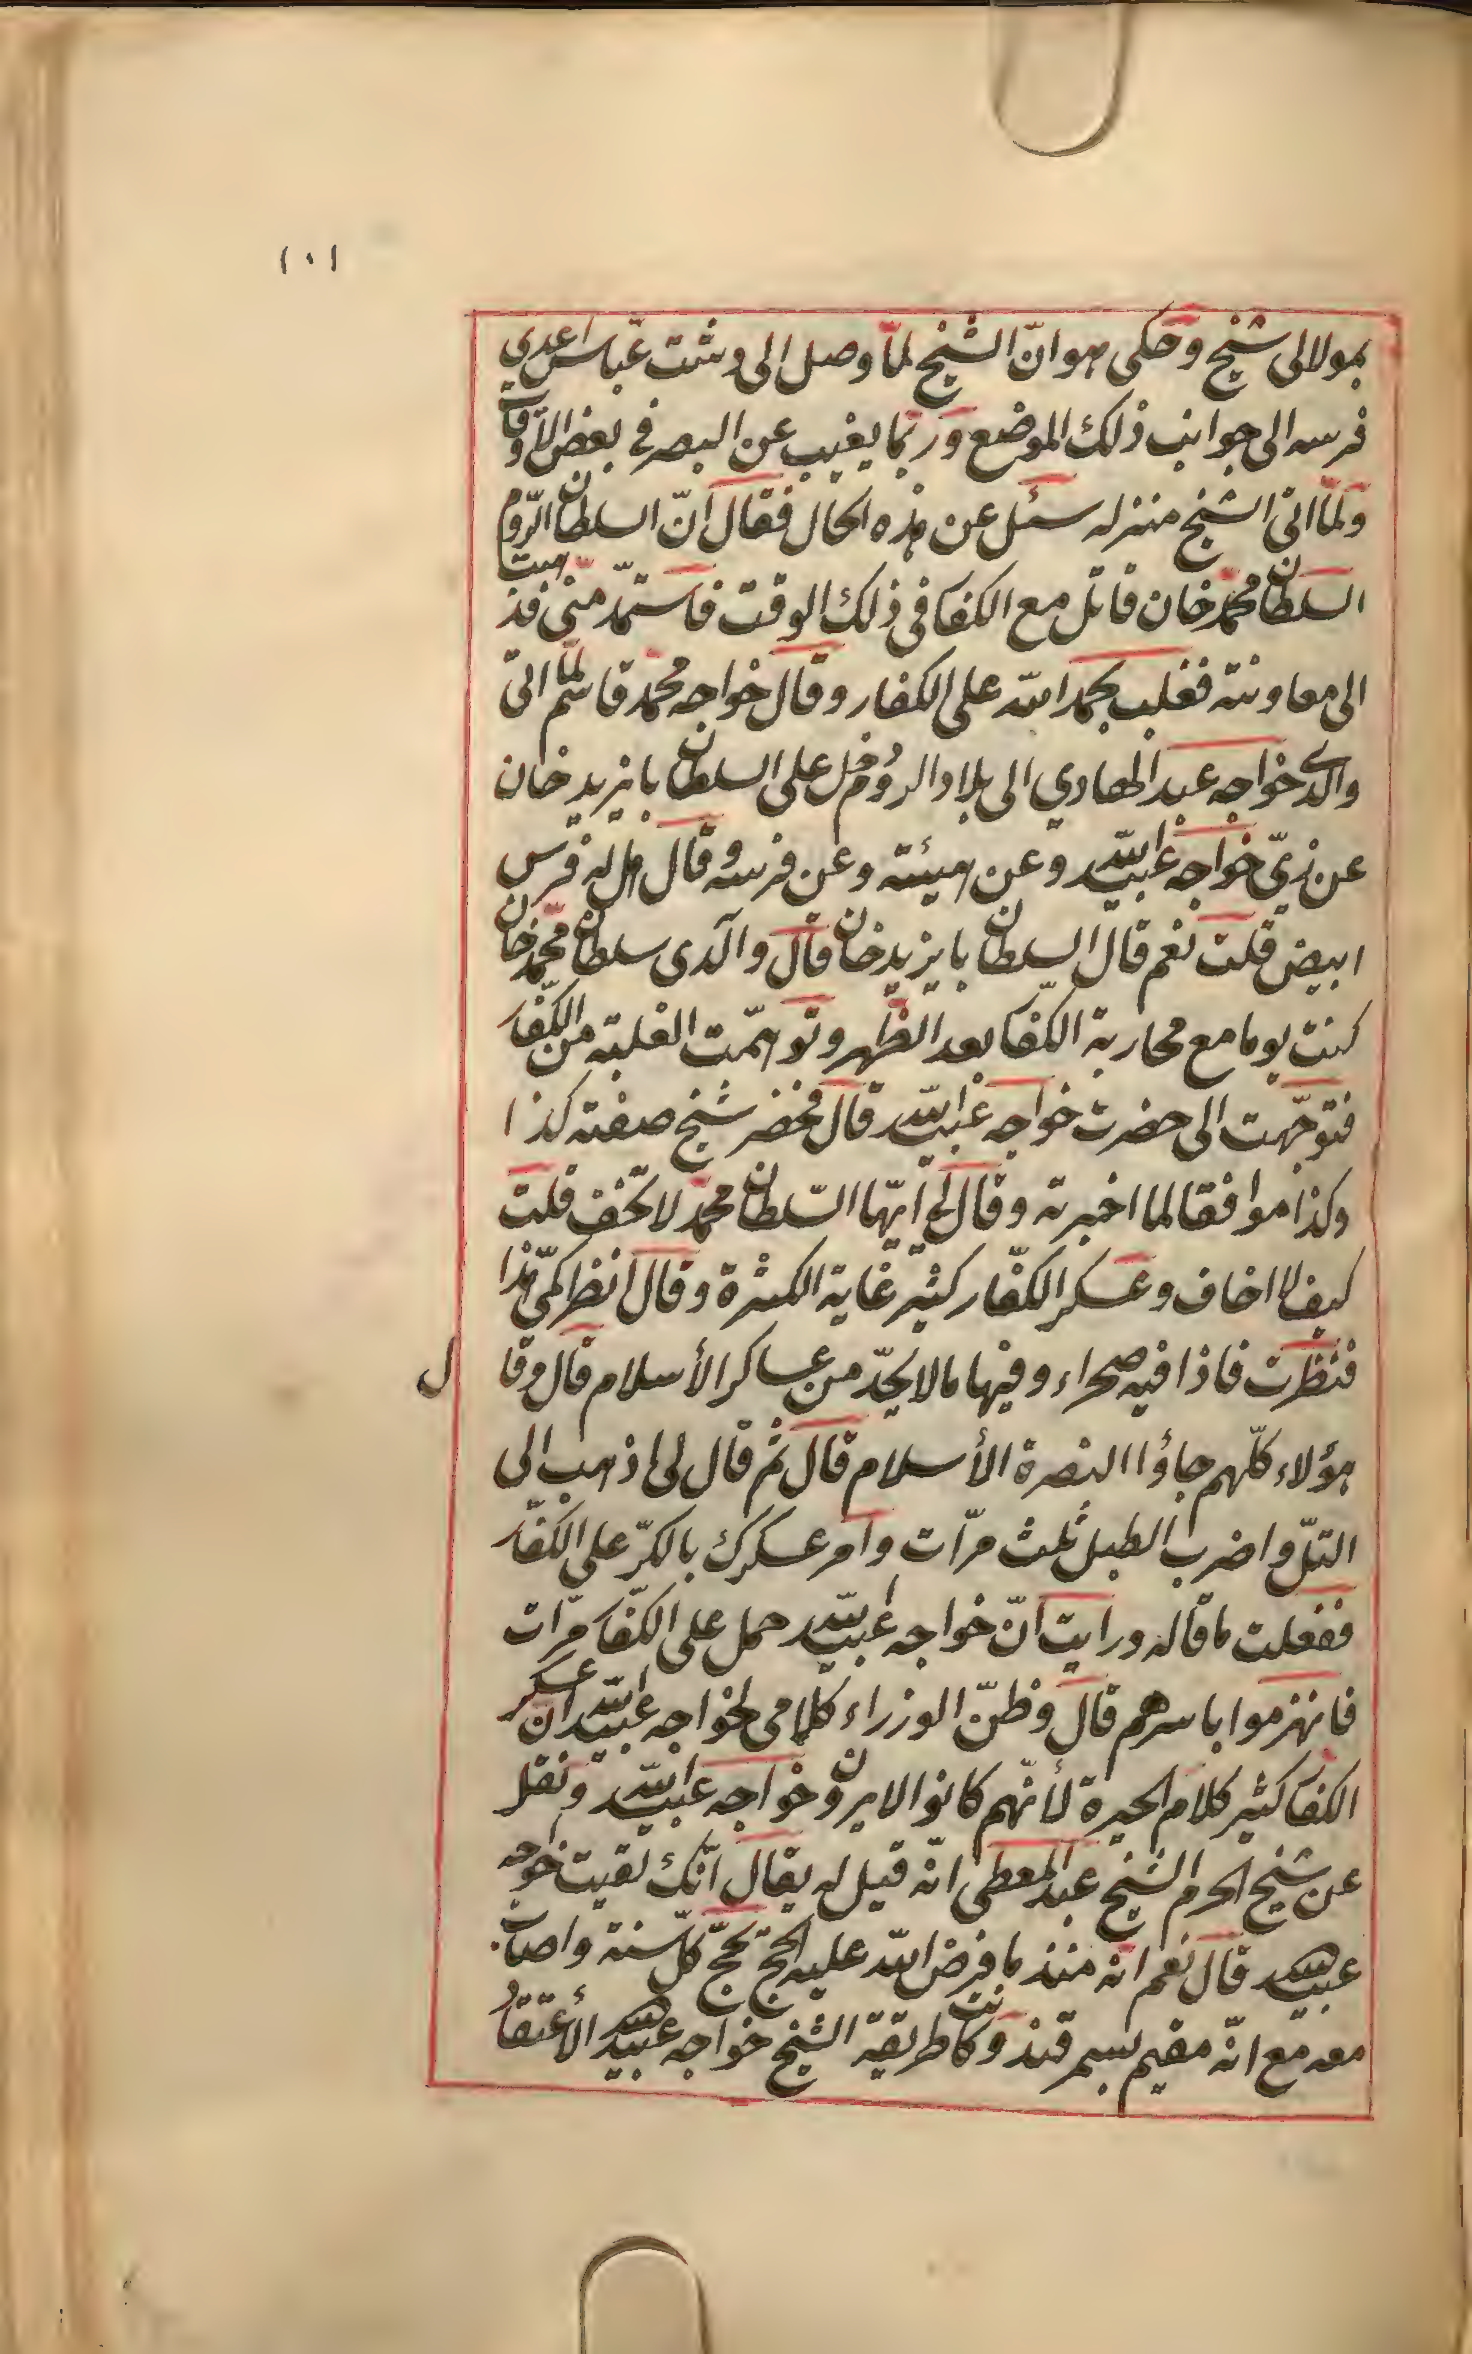 ١٠١
بمولالى شيخ وحكى هو انّ الشيخ لمّا وصل الى دشت عبّاس اعدى
فرسه الى جوانب ذلك الموضع وربّما يغيب عن البصر فى بعض الاوقات
ولمّا اتى الشيخ منزله سئل عن هذه الحال فقال انّ السلطان الرّوم
السلطان محمّد خان قاتل مع الكفا فى ذلك الوقت فاستمدّ منّى فذهبت
الى معاونته فغلب بحمد الله على الكفار وقال خواجه محمّد قاسم لمّا اتى
والدى خواجه عبد الهادي الى بلاد الروم دخل على السلطان بايزيد خان
عن زيّ خواجه عبيد الله وعن هيئته وعن فرسه وقال هل له فرس
ابيض قلت نعم قال السلطان بايزيد خان قال والدى سلطان محمّد خان
كنت يوما مع محاربة الكفا بعد الظّهر وتوهّمت الغلبة من الكفّار
فتوجّهت الى حضرت خواجه عبيد الله قال فحضر شيخ صفته كذا
وكذا موافقا لما اخبرته وقال لى ايّها السّلطان محمّد لا تخف قلت
كيف لا اخاف وعسكر الكفّار كثير غاية الكثرة وقال انظر كمّى هذا
فنظرت فاذا فيه صحراء وفيها ما لا يحدّ من عساكر الأسلام قال وقا
ل
هؤلاء كلّهم جاؤا النصرة الأسلام قال ثم قال لى اذهب الى
التلّ واضرب الطبل ثلث مرّات وامر عسكرك بالكرّ على الكفّار
ففعلت ما قاله ورايت انّ خواجه عبيد الله حمل على الكفّار مرّات
فانهزموا باسرهم قال وظنّ الوزراء كلامى لخواجه عبيد الله ان عسكر
الكفا كثير كلام الحيرة لأنّهم كانوا لا يرون خواجه عبيد الله ونقل
عن شيخ الحرم الشيخ عبد المعطى انّه قيل له يقال انّك لقيت خواجه
عبيد الله قال نعم انّه منذ ما فرض الله عليه الحجّ يحجّ كلّ سنة واصاحب
معه مع انّه مقيم بسمرقند وكانت طريقة الشيخ خواجه عبيد الله الأعتقاد